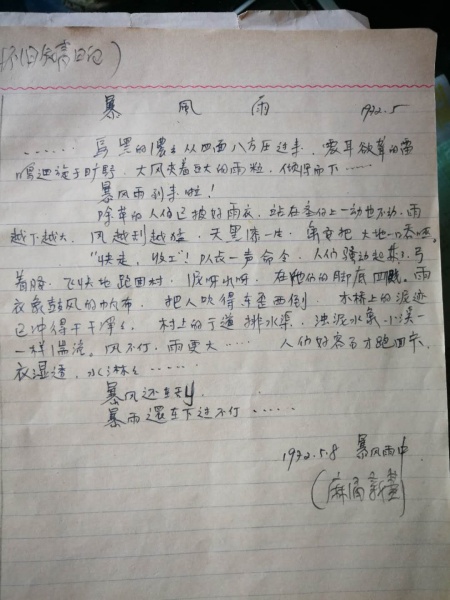 怀旧知高日记)
暴 风 雨 1972.5
……乌黑的浓云从四面八方压过来,震耳欲聋的雷
鸣迴旋于旷野,大风夹着巨大的雨粒,倾泻而下……
暴风雨到来啦!
除草的人们已披好雨衣,站在垄上一动也不动,雨
越下越大,风越刮越猛,天黑漆一片,象要把大地一口吞噬。
"快走,收工"!队长一声命令,人们骚动起来,弓
着腰,飞快地跑回村,泥呀水呀,在他们的脚底四溅。雨
衣象鼓风的帆布,把人吹得东歪西倒,木桥上的泥迹
已冲得干干净净,村上的干道排水渠,浊泥水氣小溪一
一样湍流。风不停,雨更大……人们好容易才跑回来,
衣湿透,水淋淋……
暴风还在刮
暴雨還在下过不停……
1972.5.8 暴风雨中